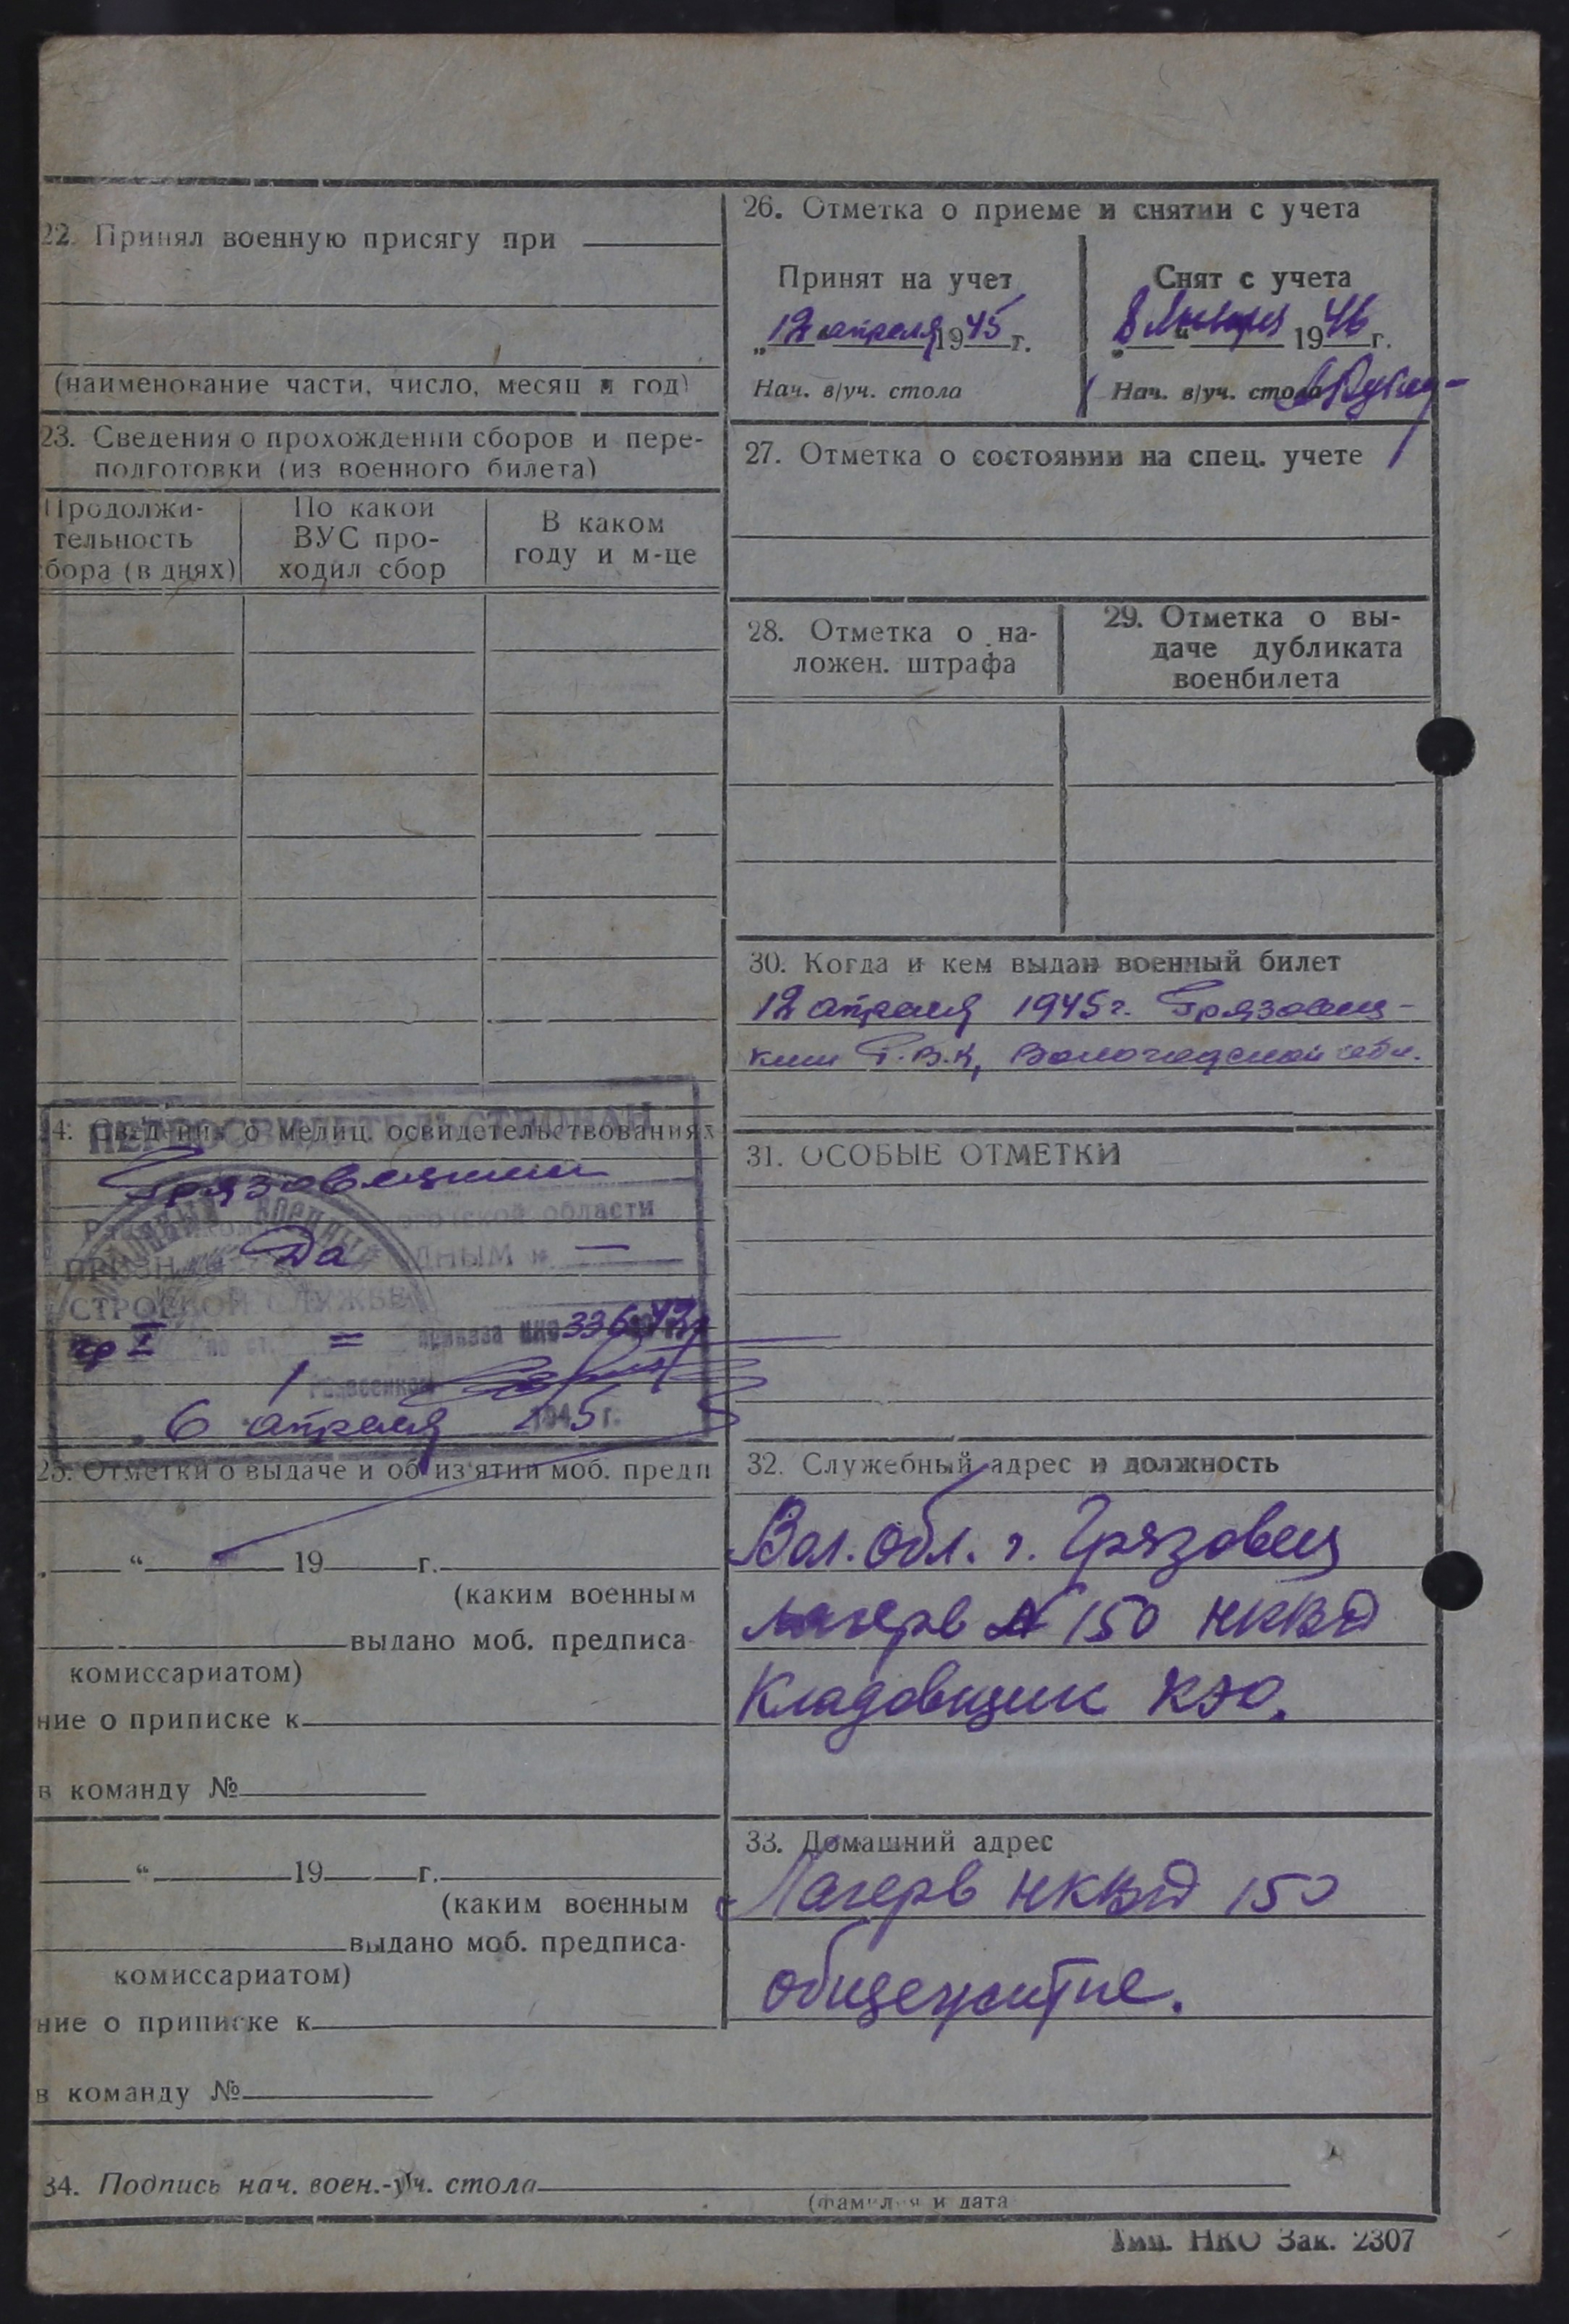 22. Принял военную присягу при
(наименование части, число, месяц и год)
23. Сведения о прохождении сборов и пере-
подготовки (из военного билета)
Продолжи-
тельность
сбора (в днях)
По какой
ВУС про-
ходил сбор
В каком
году и м-це
24. Сведения о медиц. освидетельствованиях
ПЕРЕОСВИДЕТЕЛЬСТВОВАН
Грязовецким
области
Да
СТРОЕВОЙ СЛУЖБЕ
гр I = приказа НКО 336-42 г
6 апреля 1945 г.
25. Отметки о выдаче и об из'ятии моб. предп
„ “ 19 г.
(каким военным
выдано моб. предписа-
комиссариатом)
ние о приписке к
в команду №
“ 19 г.
(каким военным
выдано моб. предписа-
комиссариатом)
ние о приписке к
в команду №
26. Отметка о приеме и снятии с учета
Принят на учет
„12“ апреля 1945 г.
Нач. в/уч. стола
Снят с учета
8 “ Января 1946 г.
Нач. в/уч. стола
27. Отметка о состоянии на спец. учете
28. Отметка о на-
ложен. штрафа
29. Отметка о вы-
даче дубликата
военбилета
30. Когда и кем выдан военный билет
12 апреля 1945 г. Грязовец-
ким Р.В.К, Вологодской обл.
31. ОСОБЫЕ ОТМЕТКИ
32. Служебный адрес и должность
Вол. обл. г. Грязовец
лагерь № 150 НКВД
Кладовщик КЭО.
33. Домашний адрес
Лагерь НКВД 150
общежитие.
34. Подпись нач. воен.-уч. стола
(фамилия и дата
Тип. НКО Зак. 2307